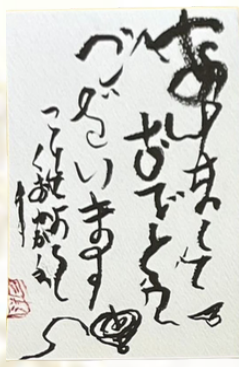 あけまして
おめでとう
ございます
ことしもよろしく
おねがい